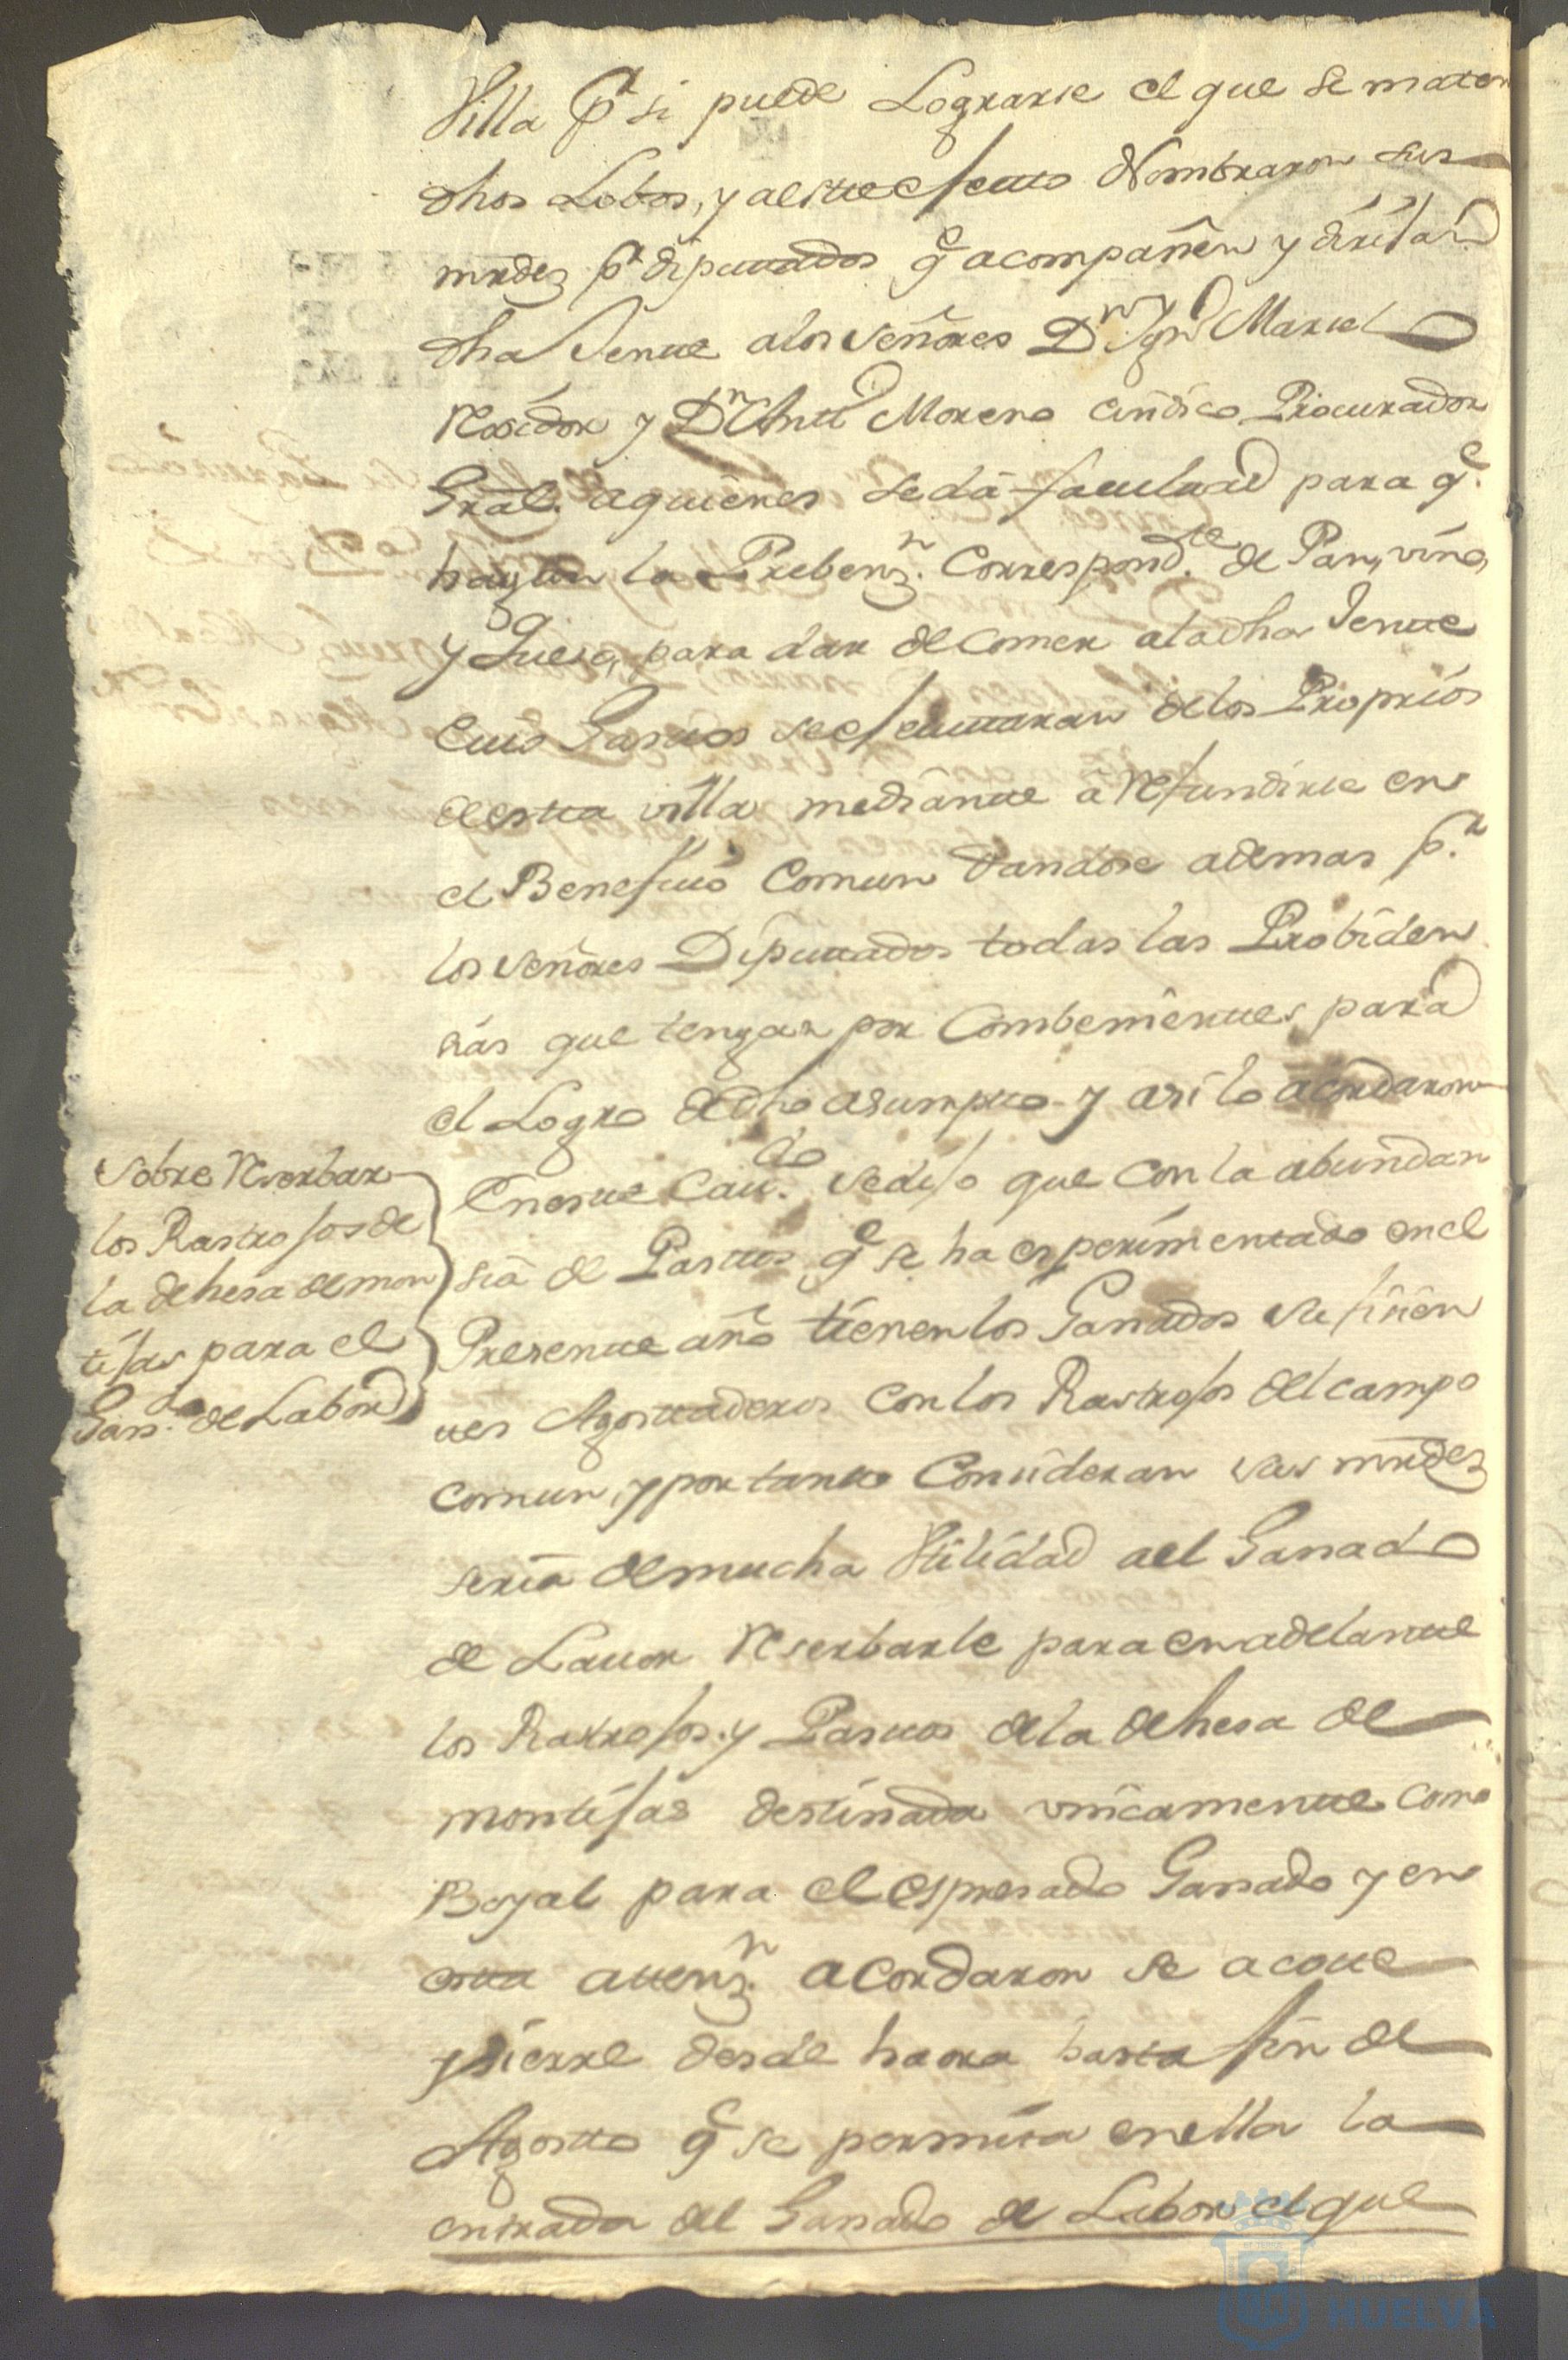 Villa pr si puede Lograrse el que se maten
dhos Lobos, y a este efecto Nombraron sus
mrdez pr diputados qe acompañen y dirijan
dha Jente a los señores Dn Ygno Mariel
Rexidor y Dn Antto Moreno cindico Procurador
Gral. a quienes se dá facultad para qe
hagan la Prebenzn. Correspondte. de Pan, vino,
y Queso, para dar de comer a la dha Jente
Cuios Gastos se efectuaran de los Proprios
de esta villa mediante á Refundirse en
el Beneficio Comun dandose ademas pr.
los señores Diputados todas las Probiden
sias que tengan por Combenientes para
el Logro de dho asumpto y asi lo acordaron
Sobre Reserbar
los Rastrojos de
la dehesa de mon
tijas para el
Gando. de Labor
En este Cavdo. se dijo que con la abundan
sia de Pastos qe se ha esperimentado en el
Presente año tienen los Ganados Sufisien
tes Agostaderos con los Rastrojos del campo
comun, y por tanto Consideran sus mrdez
seria de mucha Utilidad a el Ganado
de Lavor Reserbarle para en adelante
los Rastrojos y Pastos de la dehesa de
montijas destinada unicamente como
Boyal para el espresado Ganado y en
esta attenzn. acordaron se acote
y sierre desde haora hasta fin de
Agosto qe se permita en ella la
entrada del Ganado de Labor el que
HUELVA